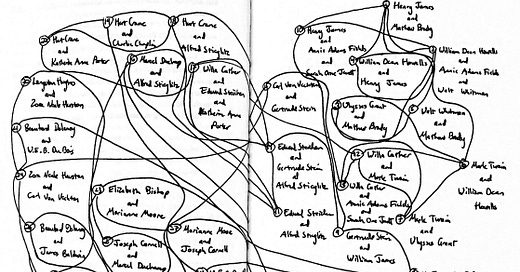 Hart Crane
and
Charlie Chaplin
Hart Crane
and
Alfred Stieglitz
Hart Crane
and
Katherine Anne Porter
Marcel Duchamp
and
Alfred Stieglitz
Willa Cather
and
Edward Steichen
and
Katherine Anne
Porter
Langston Hughes
and
Zora Neale Hurston
Beauford Delaney
and
W.E.B. Du Bois
Zora Neale Hurston
and
Carl Van Vechten
Elizabeth Bishop
and
Marianne Moore
Beauford Delaney
and
James Baldwin
Joseph Cornell
and
Marcel Duchamp
Marianne Moore
and
Joseph Cornell
Henry James
and
Mathew Brady
Henry James
and
Annie Adams Fields
and
Sarah Orne Jewett
William Dean Howells
and
Henry James
William Dean Howells
and
Annie Adams Fields
and
Walt Whitman
Carl Van Vechten
and
Gertrude Stein
Ulysses Grant
and
Mathew Brady
Walt Whitman
and
Mathew Brady
Edward Steichen
and
Gertrude Stein
and
Alfred Stieglitz
Willa Cather
and
Mark Twain
Mark Twain
and
William Dean
Howells
Willa Cather
and
Annie Adams Fields
and
Sarah Orne Jewett
Edward Steichen
and
Alfred Stieglitz
Mark Twain
and
Ulysses Grant
Gertrude Stein
and
William James